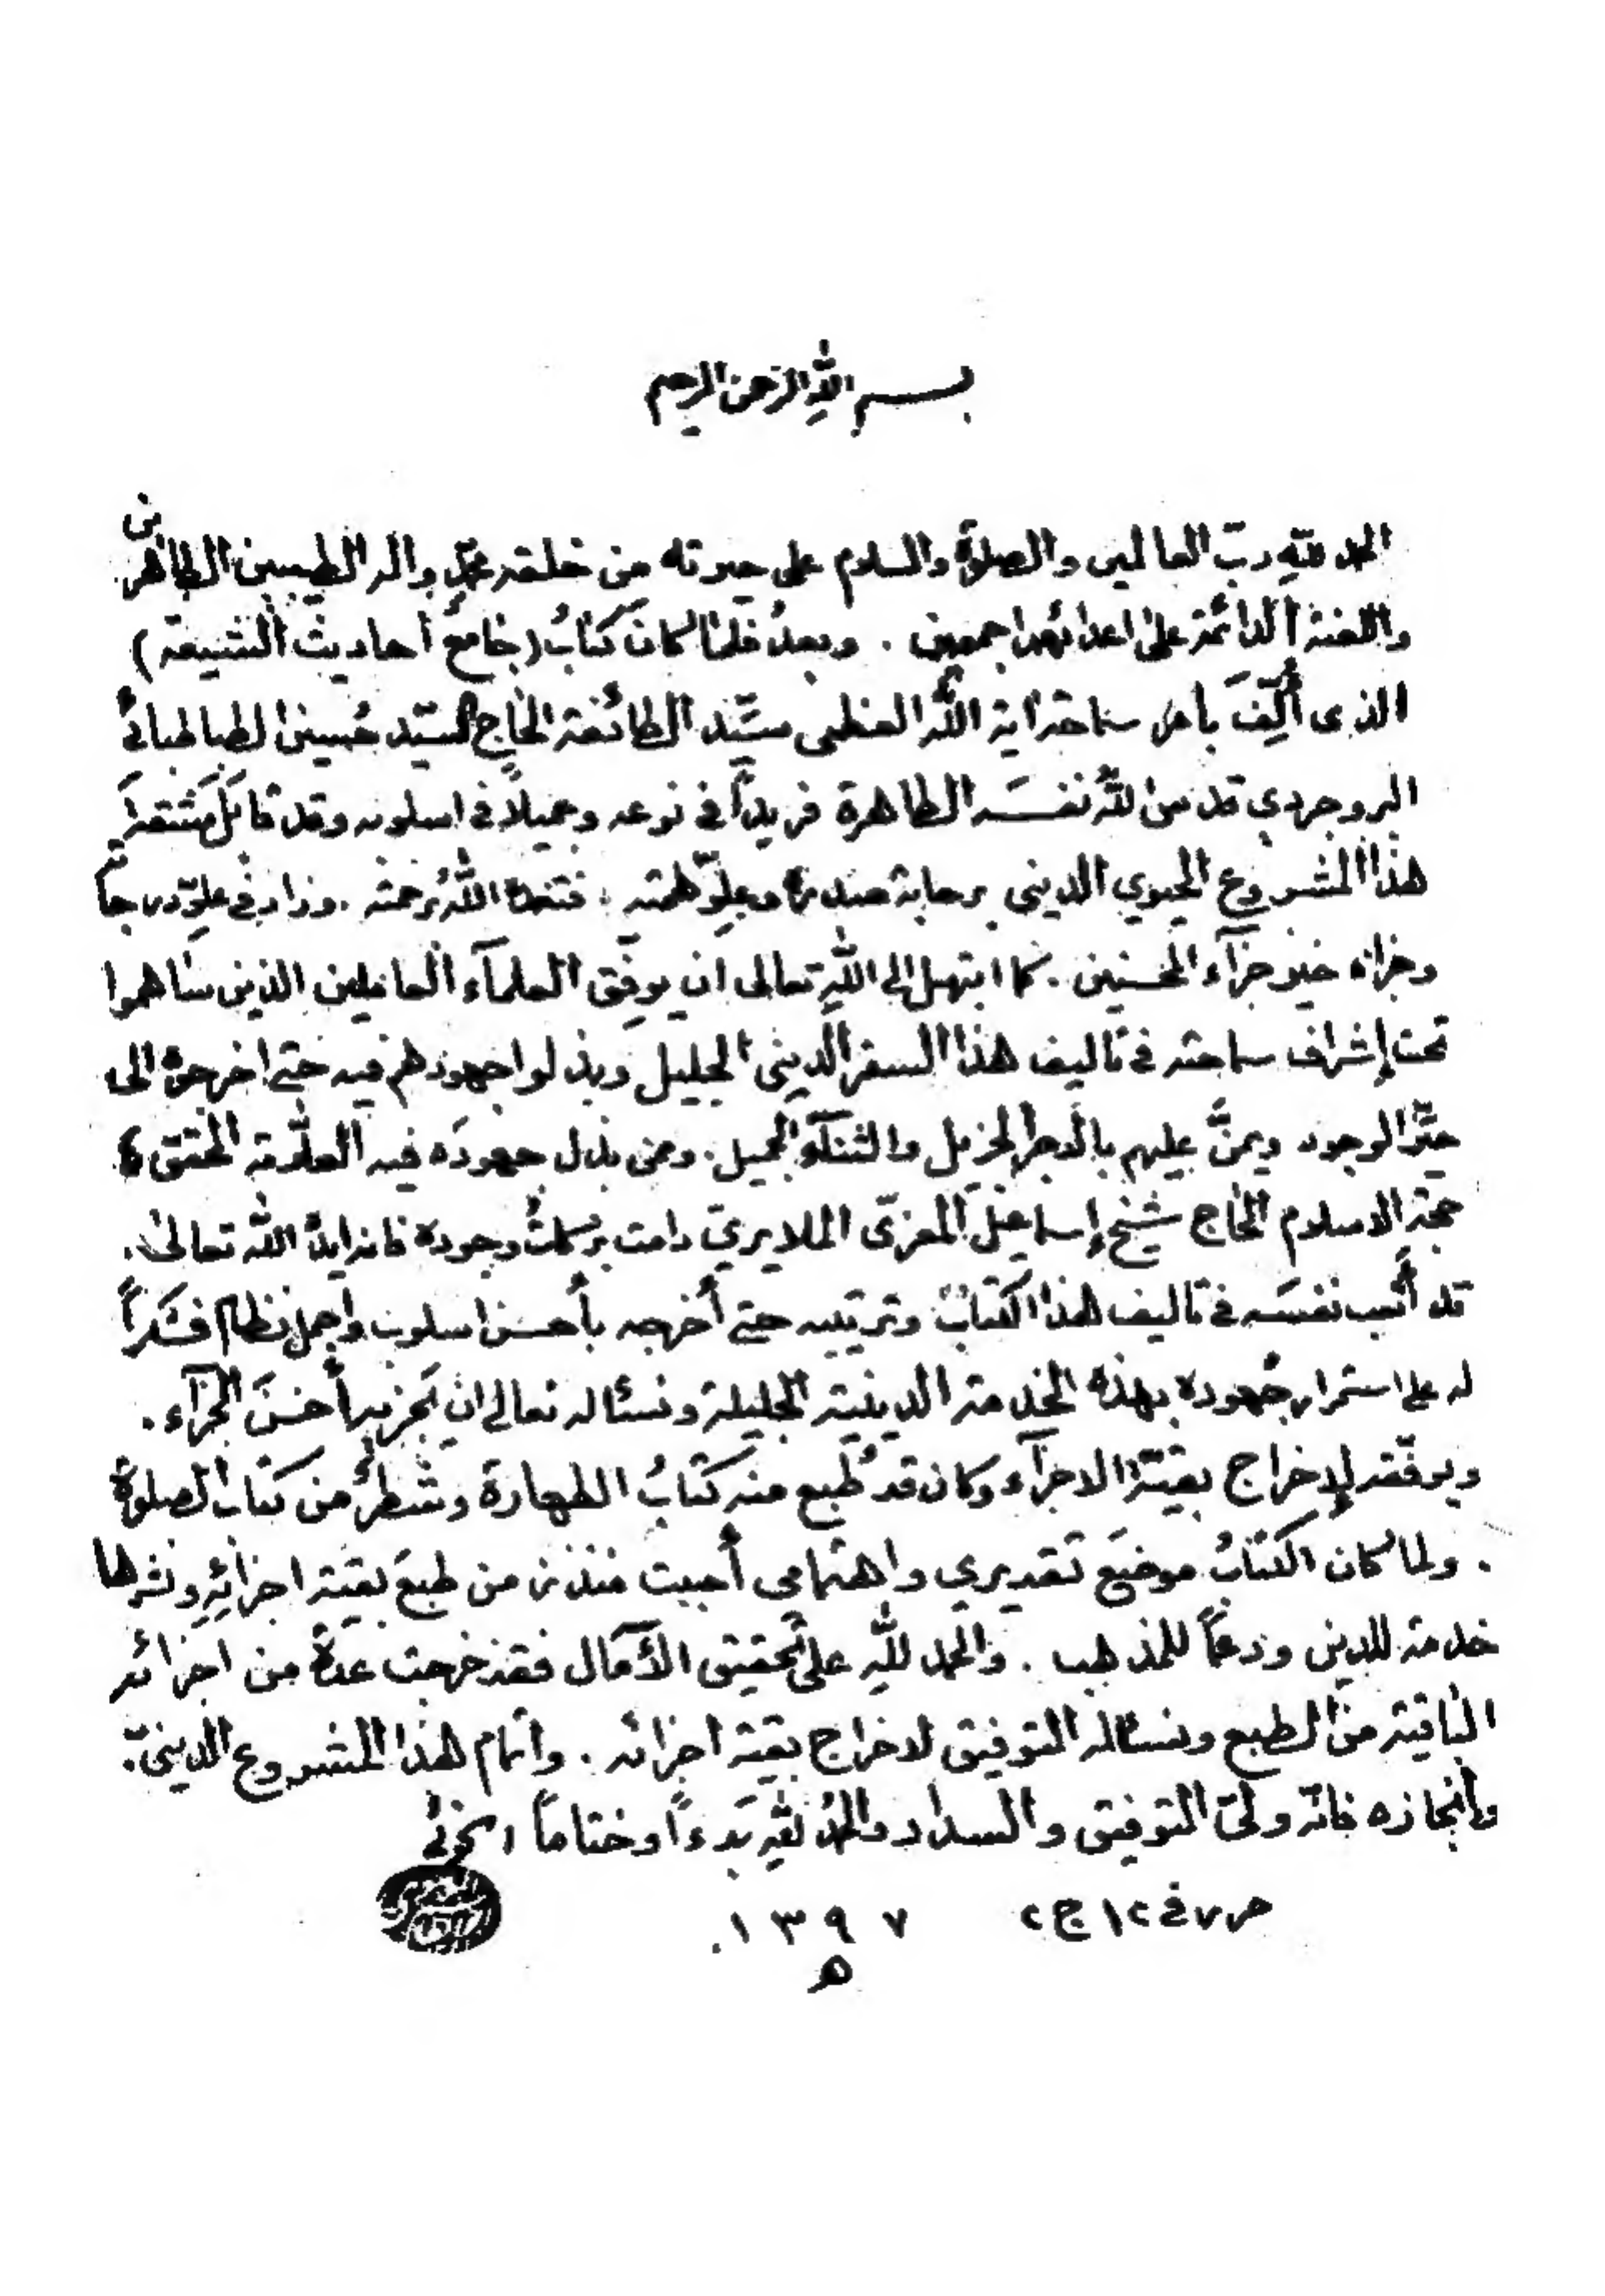 بسم الله الرحمن الرحيم
الحمد لله ربّ العالمين والصلوة والسلام على خيرته من خلقه محمّد واله الطيبين الطاهرين
واللعنة الدائمة على اعدائهم اجمعين . وبعدُ فلمّا كان كتابُ (جامعُ أحاديث الشيعة)
الذى أُلِّفَ بأمر سماحة اية الله العظمى سيّد الطائفة الحاج السيّد حُسين الطباطبائى
البروجردي قدس اللهُ نفسَه الطاهرة فريداً في نوعه وجميلاً في اسلوبه وقد قابَلَ مَشقّةَ
هذا المشروع الحيوي الديني برحابة صدره وعلوّ همّته . فتغمّدهُ اللهُ برحمته . وزاد في علوّ درجاته
وجزاه خير جزآء المحسنين . كما ابتهل الى اللهِ تعالى ان يوفِّق العلمآء العاملين الذين ساهموا
تحت إشراف سماحته في تاليف هذا السفر الديني الجليل وبذلوا جهودهم فيه حتى اخرجوهُ الى
حيّز الوجود ويمنَّ عليهم بالاجر الجزيل والثنآء الجميل . وممن بذل جهودَه فيه العلاّمة المحقق
حجة الاسلام الحاج شيخ إسماعيل المعزّى الملايري دامت بركاتُ وجوده فانه ايدهُ الله تعالى .
قد أتعب نفسَه في تاليف هذا الكتاب وترتيبه حتى أخرجه بأحسن اسلوب وأجمل نظام فشكراً
له على استمرار جُهوده بهذه الخدمة الدينية الجليلة ونسئاله تعالى ان يَجزيه أحسنَ الجزآء .
ويوفّقه لإخراج بقيّة الاجزآء وكان قد طُبع منه كتابُ الطهارة وشطرٌ من كتاب الصلوة
. ولما كان الكتابُ موضعَ تقديري واهتمامي أحببت من طبعَ بقية اجزائِهِ ونشرها
خدمة للدين ودعماً للمذهب . والحمد للهِ على تحقيق الآمال فقد خرجت عدةٌ من اجزائه
الباقية من الطبع ونسئاله التوفيق لاخراج بقية اجزائه . واتمام هذا المشروع الدينيّ .
وإنجازه فانّه وليّ التوفيق والسداد والحمدُ للهِ بَدءاً وختاماً الخوئي
حرر في ١٢ ج٢ ١٣٩٧.
ه